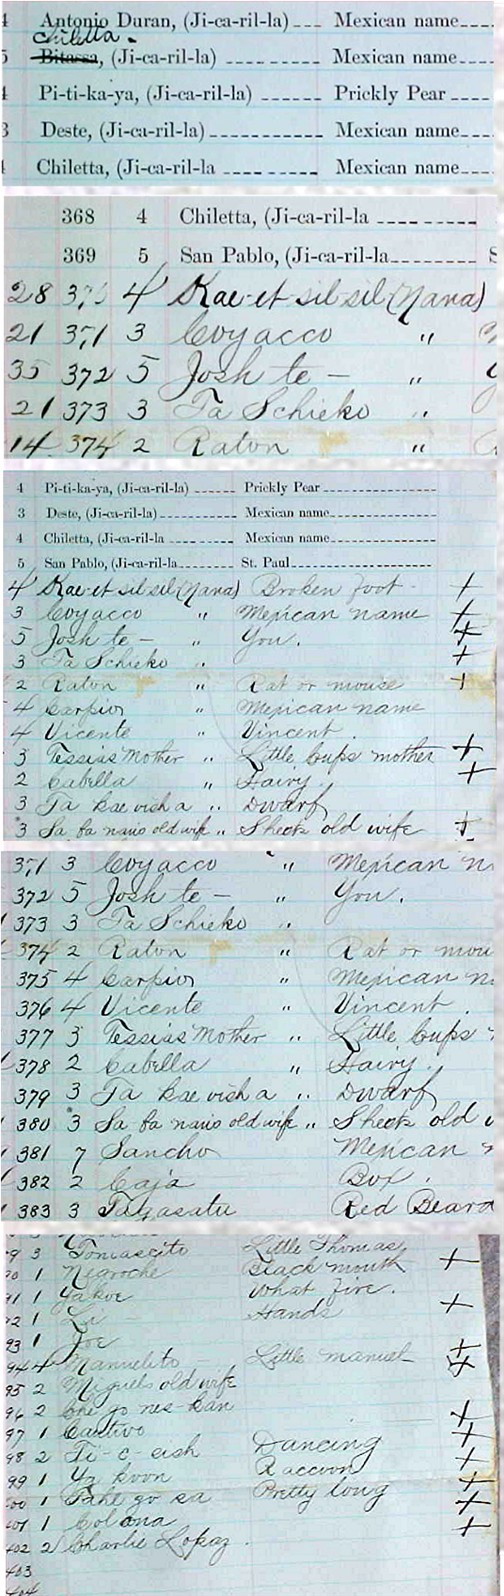 4 Antonio Duran, (Ji-ca-ril-la) Mexican name
Chiletta.
5 Bitassa, (Ji-ca-ril-la) Mexican name
4 Pi-ti-ka-ya, (Ji-ca-ril-la) Prickly Pear
3 Deste, (Ji-ca-ril-la) Mexican name
Chiletta, (Ji-ca-ril-la Mexican name
368 4 Chiletta, (Ji-ca-ril-la
369 5 San Pablo, (Ji-ca-ril-la S
28 370 4 Kae-et-sil-sil (Nana)
21 371 3 Coyacco "
35 372 5 Josh te - "
21 373 3 Ta Schieko "
14 374 2 Raton "
4 Pi-ti-ka-ya, (Ji-ca-ril-la) Prickly Pear
3 Deste, (Ji-ca-ril-la) Mexican name
4 Chiletta, (Ji-ca-ril-la Mexican name
5 San Pablo, (Ji-ca-ril-la St. Paul
4 Kae-et-sil-sil (Nana) Broken foot +
3 Coyacco " Mexican name +
5 Josh te - " You. +
3 Ta Schieko " +
2 Raton " Rat or mouse +
4 Carpio " Mexican name
4 Vicente " Vincent.
3 Tessias Mother " Little Cups mother +
2 Cabella " Fairy. +
3 Ta kae vish a " Dwarf
3 Sa ba nais old wife " Sheets old wife +
371 3 Coyacco " Mexican n
372 5 Josh te - " You.
373 3 Ta Schieko "
374 2 Raton " Rat or mou
375 4 Carpio " Mexican n
376 4 Vicente " Vincent.
377 3 Tessias Mother " Little Cups
378 2 Cabella " Fairy.
379 3 Ta kae vish a " Dwarf
380 3 Sa ba nais old wife " Sheets old w
381 7 Sancho Mexican
382 2 Caja Box.
383 3 Tagasatu Red Beard
9 3 Tomascito Little Thomas
90 1 Negroche Black mouth +
91 1 Yakoe What fire.
92 1 Li Hands +
93 1 Joe
94 4 Manuelito Little manuel +
95 2 Miguels old wife
96 2 Che go nes-kan
97 1 Cautivo +
98 2 Ti-c-eish Dancing +
99 1 Yz koon Raccoon +
400 1 Tahe go sa Pretty long +
401 1 Colona +
402 2 Charlie Lopaz.
403
404